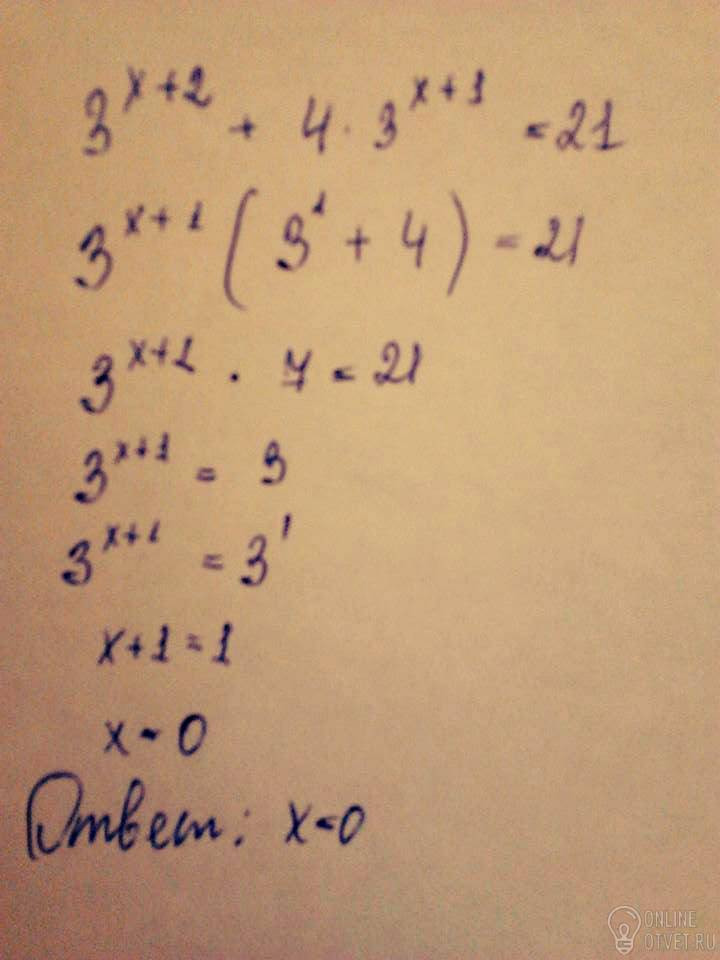 3^{x+2} + 4 · 3^{x+1} = 21
3^{x+1} (3^1 + 4) = 21
3^{x+1} · 7 = 21
3^{x+1} = 3
3^{x+1} = 3^1
x+1=1
x=0
Ответ: x=0
ONLINE
OTVET.RU